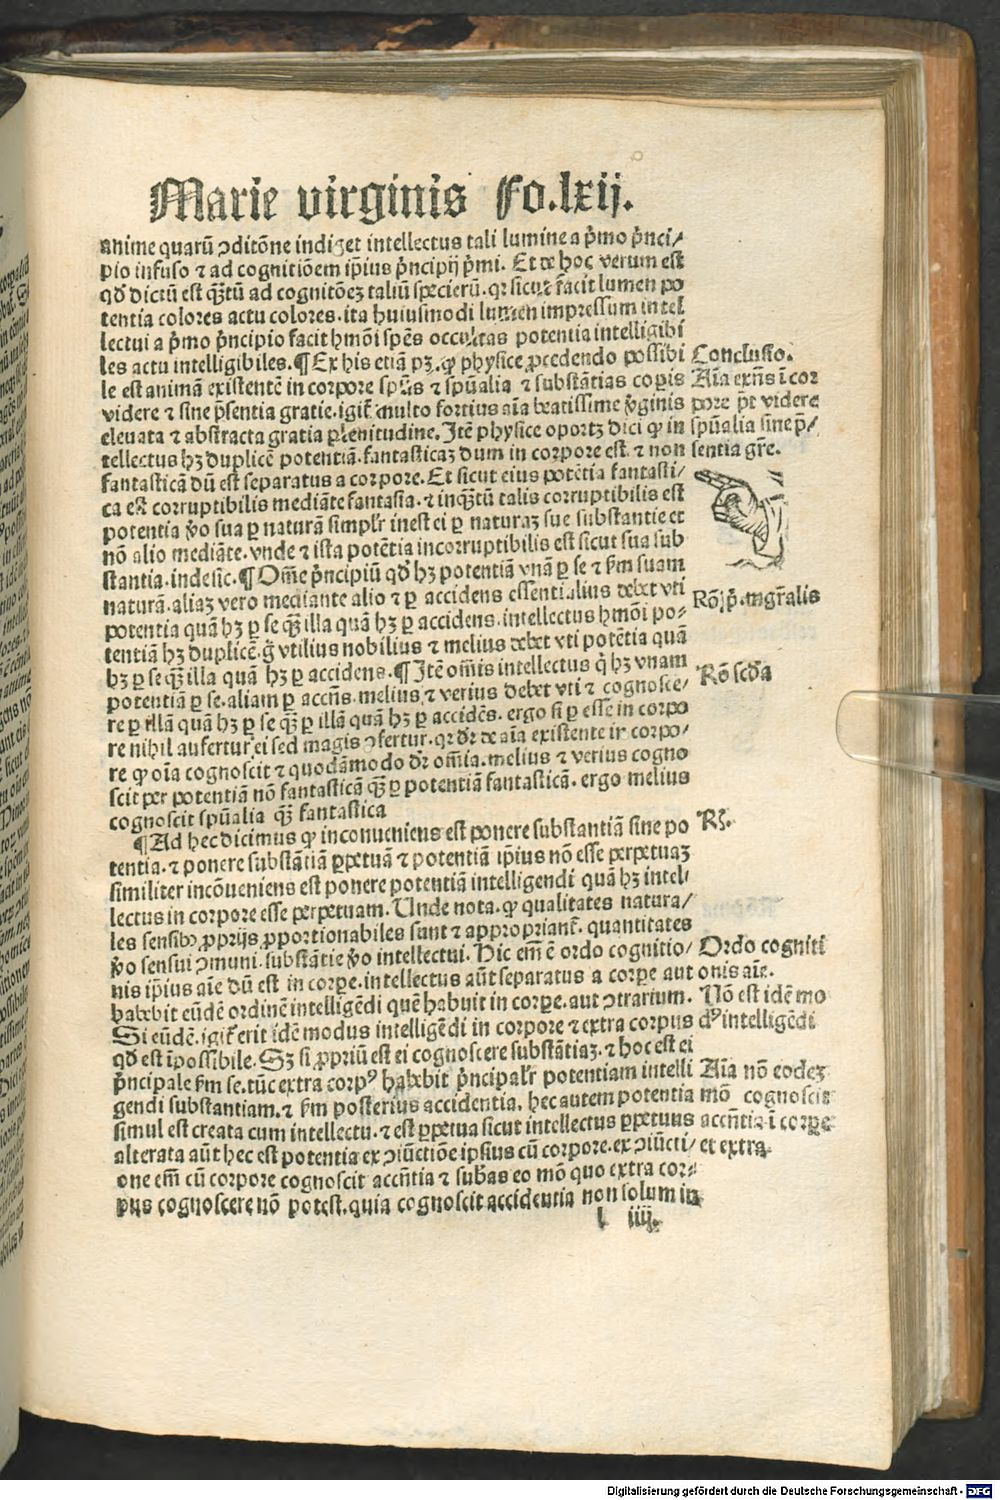 Marie virginis Fo.lxij.
anime quarū ↄditōne indiget intellectus tali lumine a p̄mo p̄nci/
pio infuso ⁊ ad cognitiōem ip̄ius p̄ncipij p̄mi. Et de hoc verum est
qđ dictū est qȝ̄tū ad cognitōeȝ taliū specierū. qꝛ sicut facit lumen po
tentia colores actu colores. ita huiusmodi lumen impressum intel
lectui a p̄mo p̄ncipio facit hmōi sp̄es occultas potentia intelligibi
les actu intelligibiles. ¶ Ex his etiā pȝ. ꝙ physice ꝓcedendo possibi
le est animā existentē in corpore sp̄us ⁊ sp̄ualia ⁊ substātias coꝑis
videre ⁊ sine p̄sentia gratie. igit̄ multo fortius aīa beatissime v̄ginis
eleuata ⁊ abstracta gratia plenitudine. Itē physice oportȝ dici ꝙ in
tellectus hȝ duplicē potentiā. fantasticaȝ dum in corpore est. ⁊ non
fantasticā dū est separatus a corpore. Et sicut eius potētia fantasti/
ca est corruptibilis mediāte fantasia. ⁊ inqȝ̄tū talis corruptibilis est
potentia v̄o sua ꝑ naturā simpl̄r inest ei ꝑ naturaȝ sue substantie et
nō alio mediāte. vnde ⁊ ista potētia incorruptibilis est sicut sua sub
stantia. inde sic. ¶ Om̄e p̄ncipiū qđ hȝ potentiā vnā ꝑ se ⁊ fm̄ suam
naturā. aliaȝ vero mediante alio ⁊ ꝑ accidens essentialius debet vti
potentia quā hȝ ꝑ se qȝ̄ illa quā hȝ ꝑ accidens. intellectus hmōi po-
tentiā hȝ duplicē. g̊ vtilius nobilius ⁊ melius debet vti potētia quā
hȝ ꝑ se qȝ̄ illa quā hȝ ꝑ accidens. ¶ Itē om̄is intellectus q̇ hȝ vnam
potentiā ꝑ se. aliam ꝑ accn̄s. melius ⁊ verius debet vti ⁊ cognosce/
re ꝑ illā quā hȝ ꝑ se qȝ̄ ꝑ illā quā hȝ ꝑ accidēs. ergo si ꝑ esse in corpo
re nihil aufertur ei sed magis ↄfertur. qꝛ dr̄ de aīa existente in corpo/
re ꝙ oīa cognoscit ⁊ quodāmodo dr̄ om̄ia. melius ⁊ verius cogno
scit per potentiā nō fantasticā qȝ̄ ꝑ potentiā fantasticā. ergo melius
cognoscit sp̄ualia qȝ̄ fantastica
¶ Ad hec dicimus ꝙ inconueniens est ponere substantiā sine po
tentia. ⁊ ponere substātiā ꝑpetuā ⁊ potentiā ip̄ius nō esse perpetuaȝ
similiter incōueniens est ponere potentiā intelligendi quā hȝ intel-
lectus in corpore esse perpetuam. Unde nota. ꝙ qualitates natura/
les sensibꝫ ꝓprijs ꝓportionabiles sunt ⁊ appropriant̄. quantitates
v̄o sensui ↄmuni. substātie v̄o intellectui. Hic em̄ ē ordo cognitio/
nis ip̄ius aīe dū est in corꝑe. intellectus aūt separatus a corꝑe aut
habebit eūdē ordinē intelligēdi quē habuit in corꝑe. aut ↄtrarium.
Si eūdē. igit̄ erit idē modus intelligēdi in corpore ⁊ extra corpus
qđ est īpossibile. Sȝ si ꝓpriū est ei cognoscere substātiaȝ. ⁊ hoc est ei
p̄ncipale fm̄ se. tūc extra corpꝰ habebit p̄ncipal̄r potentiam intelli
gendi substantiam. ⁊ fm̄ posterius accidentia. hec autem potentia
simul est creata cum intellectu. ⁊ est ꝑpetua sicut intellectus ꝑpetuus
alterata aūt hec est potentia ex ↄiūctiōe ipsius cū corpore. ex ↄiūcti/
one em̄ cū corpore cognoscit accn̄tia ⁊ sub̄as eo mō quo extra cor-
pus cognoscere nō potest. quia cognoscit accidentia non solum in
l iiij.
Conclusio.
Aīa exn̄s ī cor
pore p̄t videre
sp̄ualia sine p̄/
sentia gr̄e.
Rō p̄. mgr̄alis
Rō scđa
Rꝫ.
Ordo cogniti
onis aīe.
Nō est idē mo
dꝰ intelligēdi
Aīa nō eodeȝ
mō cognoscit
accn̄tia ī corꝑe
et extra
Digitalisierung gefördert durch die Deutsche Forschungsgemeinschaft - DFG